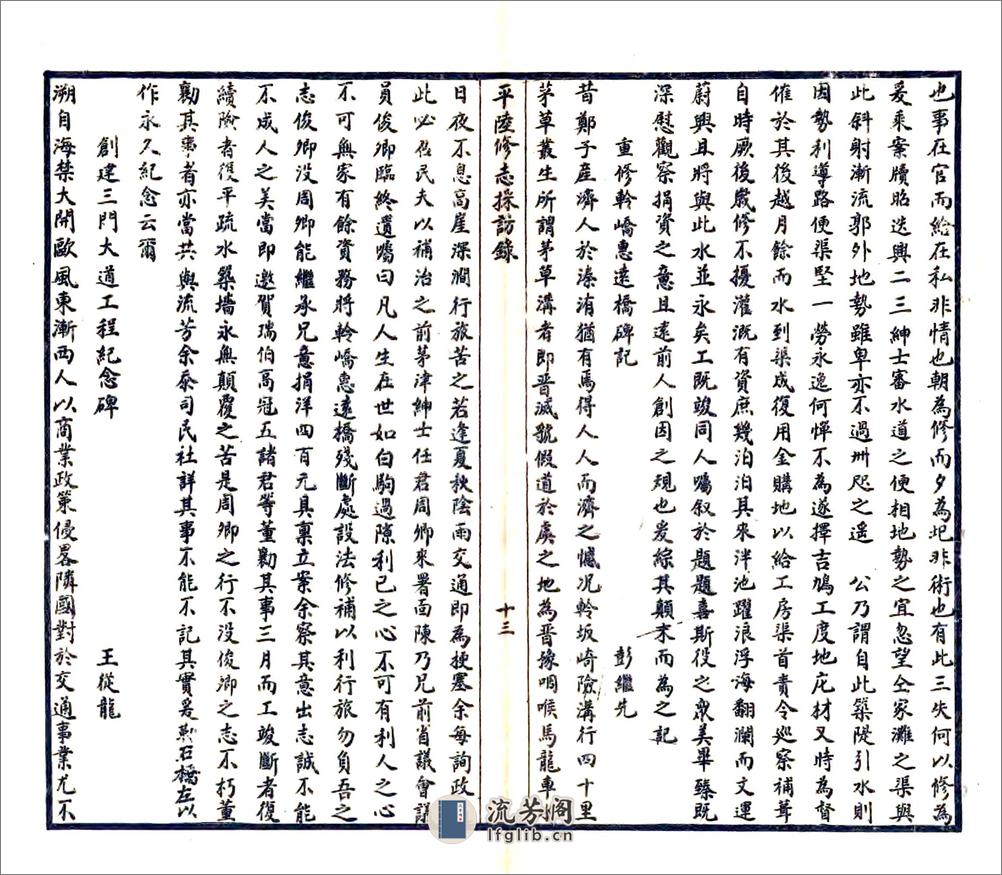 也事在官而給在私非情也朝為修而夕為圯非術也有此三失何以修為
爰乘案牘昭迭興二三紳士審水道之便相地勢之宜忽望全家灘之渠與
此斜射漸流郭外地勢雖卑亦不過卅咫之遙 公乃謂自此築隄引水則
因勢利導路便渠堅一勞永逸何憚不為遂擇吉鳩工度地庀材又時為督
催於其後越月餘而水到渠成復用金購地以給工房渠首責令巡察補葺
自時厥後歲修不擾灌溉有資庶幾泊泊其來泮池躍浪浮海翻瀾而文運
蔚興且將與此水並永矣工既竣同人囑叙於題題喜斯役之衆美畢臻既
深慰觀察捐資之意且遠前人創因之規也爰綜其顛末而為之記
重修軨嶠惠遠橋碑記 彭繼先
昔鄭子產濟人於溱洧猶有焉得人人而濟之憾况軨坂崎險溝行四十里
茅草叢生所謂茅草溝者即晋滅虢假道於虞之地為晋豫咽喉馬龍車
平陸修志採訪錄 十三
日夜不息高崖深澗行旅苦之若逢夏秋陰雨交通即為梗塞余每詢政
此必召民夫以補治之前茅津紳士任君周卿來署面陳乃兄前省議會議
員俊卿臨終遺囑曰凡人生在世如白駒過隙利己之心不可有利人之心
不可無家有餘資務將軨嶠惠遠橋殘斷處設法修補以利行旅勿負吾之
志俊卿没周卿能繼承兄意捐洋四百元具稟立案余察其意出志誠不能
不成人之美當即邀賀瑞伯高冠五諸君等董勷其事三月而工竣斷者復
續險者復平疏水築墻永無顛覆之苦是周卿之行不没俊卿之志不朽董
勷其事者亦當共與流芳余忝司民社詳其事不能不記其實爰勒石橋左以
作永久紀念云爾
創建三門大道工程紀念碑 王從龍
溯自海禁大開歐風東漸西人以商業政策侵畧隣國對於交通事業尤不
流芳阁
lfglib.cn